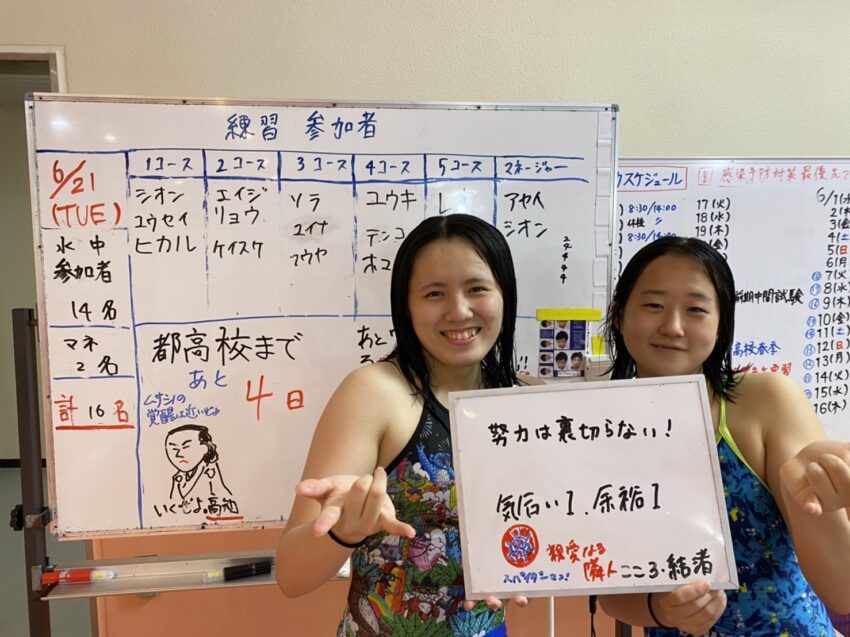 練習 参加者
6/21
(TUE)
1コース 2コース 3コース 4コース 5コース マネージャー
シオン エイジ ソラ ユウキ アヤイ
ユウセイ リョウ ユイナ テンコ シオン
ヒカル ケイスケ フウヤ
水中
参加者
14名
マネ
2名
計 16名
都高校まで
あと
4日
覚醒は近いぜよ
いくぜよ。高池
あと
スケジュール
感染予防対策最優先
8:30/14:00
8:30/14:00
17(火)
18(水)
19(木)
6/1(水
2(木
3(金
4(土
5(日
6(月
7(火
8(水)
9(木)
10(金)
11(土)
12(日)
13(月)
14(火)
15(水)
16(木)
前期中間試験
高校春季
努力は裏切らない!
気合いI、余裕I
親愛なる
隣人
スパイダーマン!
こころ・結者